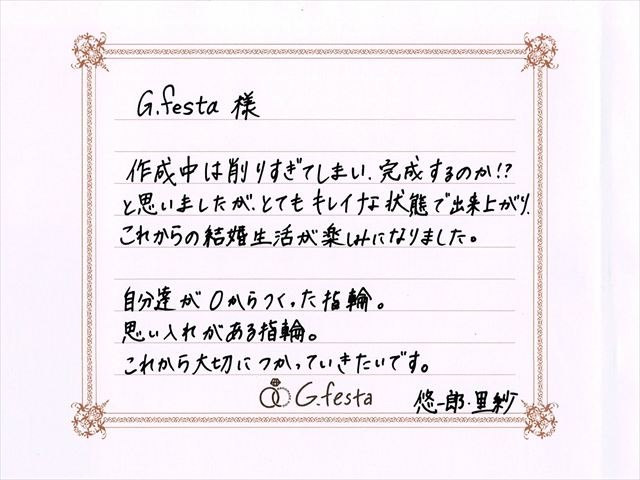 G.festa 様
作成中は削りすぎてしまい、完成するのか!?
と思いましたが、とてもキレイな状態で出来上がり、
これからの結婚生活が楽しみになりました。
自分達が0からつくった指輪。
思い入れがある指輪。
これから大切につかっていきたいです。
G.festa
悠一郎・里紗